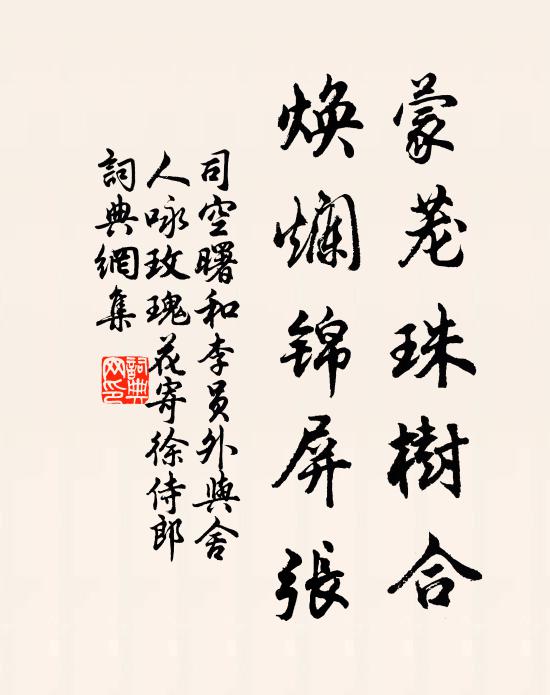 蒙茏珠樹合
焕爛锦屏張
司空曙和李员外與舍
人咏玫瑰花寄徐侍郎
詞典網集
詞典
网印